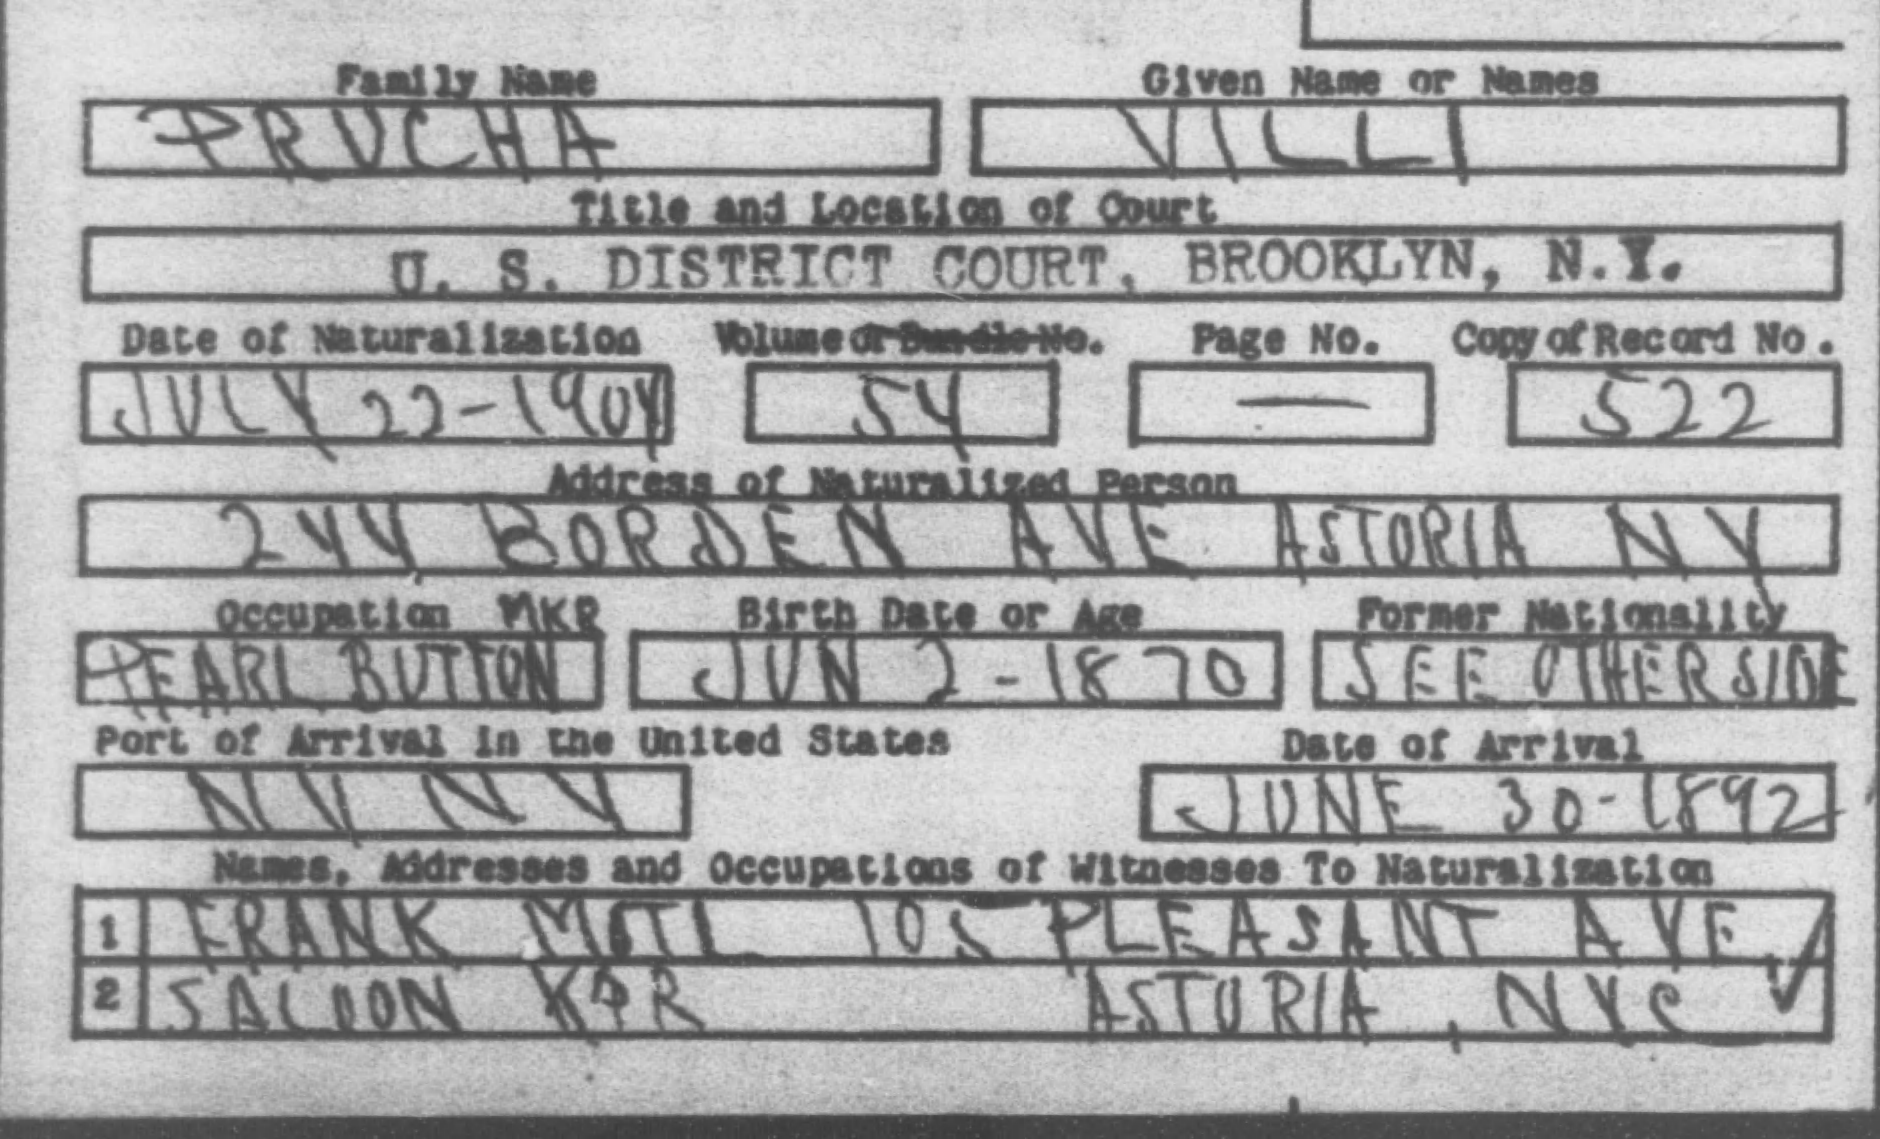 Family Name Given Name or Names
PRUCHA VILLI
Title and Location of Court
U. S. DISTRICT COURT, BROOKLYN, N.Y.
Date of Naturalization Volume or Bundle No. Page No. Copy of Record No.
JULY 22-1904 54 — 522
Address of Naturalized Person
244 BORDEN AVE ASTORIA NY
Occupation MKR Birth Date or Age Former Nationality
PEARL BUTTON JUN 2-1870 SEE OTHER SIDE
Port of Arrival in the United States Date of Arrival
NY NY JUNE 30-1892
Names, Addresses and Occupations of Witnesses To Naturalization
1 FRANK MOTL 105 PLEASANT AVE
2 SALOON KPR ASTORIA, NYC